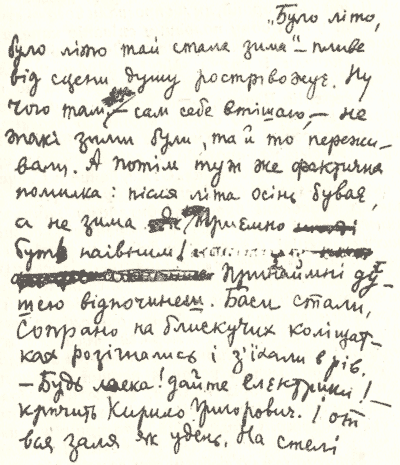 „Було літо,
було літо тай стала зима" – пливе
від сцени душу розтрівожує. Ну
чого там, – сам себе втішаю, – не
такі зими були, та й то пережи-
вали. А потім тут же фактична
помилка: після літа осінь буває,
а не зима Приємно
буть наівним!
Принаймні ду-
шею відпочинеш. Баси стали,
Сопрано на блискучих коліщат-
ках розігнались і з'їхали в рів.
– Будь ласка! дайте електрики! –
кричить Кирило Григорович. І от
вся заля як удень. На стелі